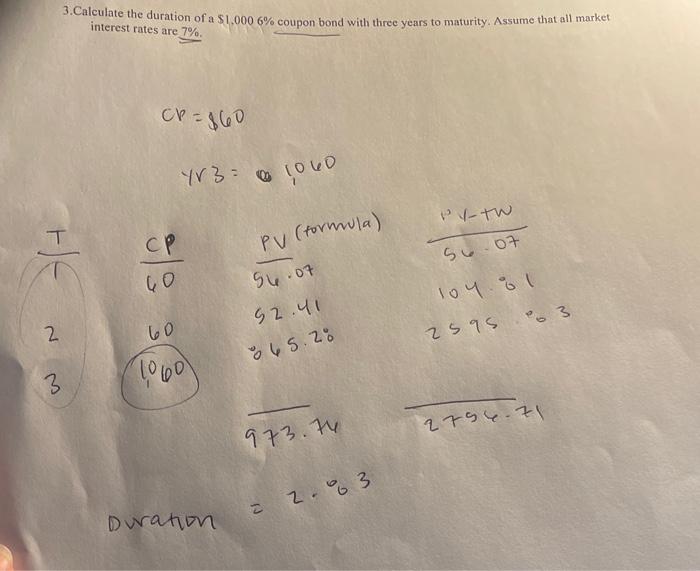 3.Calculate the duration of a $1,000 6% coupon bond with three years to maturity. Assume that all market
interest rates are 7%.
CP = $60
yr3 = 1,060
T CP PV (formula) PV-TW
1 60 56.07 56.07
2 60 52.41 104.81
3 1,060 865.28 2595.83
973.76 2756.71
Duration = 2.83